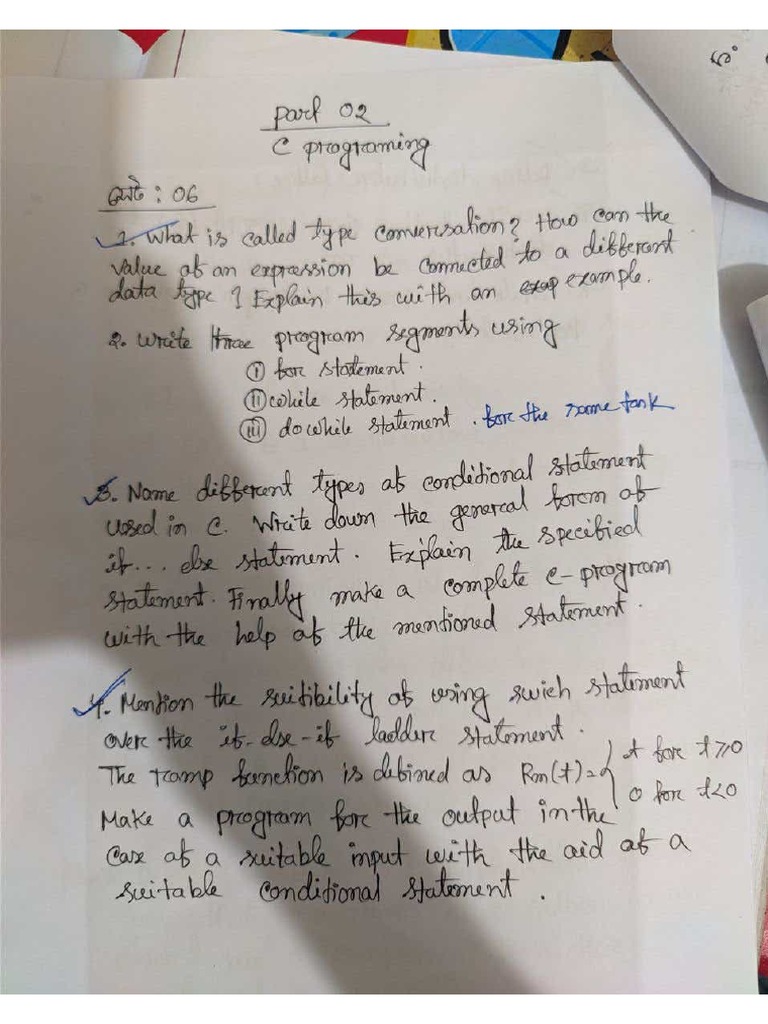 Part 02
C programing
সেট : 06
1. What is called type conversation? How can the
value of an expression be connected to a different
data type? Explain this with an example.
2. Write three program segments using
(i) for statement.
(ii) while statement.
(iii) do while statement. for the same task
3. Name different types of conditional statement
used in C. Write down the general form of
if... else statement. Explain the specified
statement. Finally make a complete C-program
with the help of the mentioned statement.
4. Mention the suitibility of using swich statement
over the if-else-if ladder statement.
The ramp function is defined as Rm(t) = { t for t≥0
0 for t<0
Make a program for the output in the
Case of a suitable input with the aid of a
suitable conditional statement.